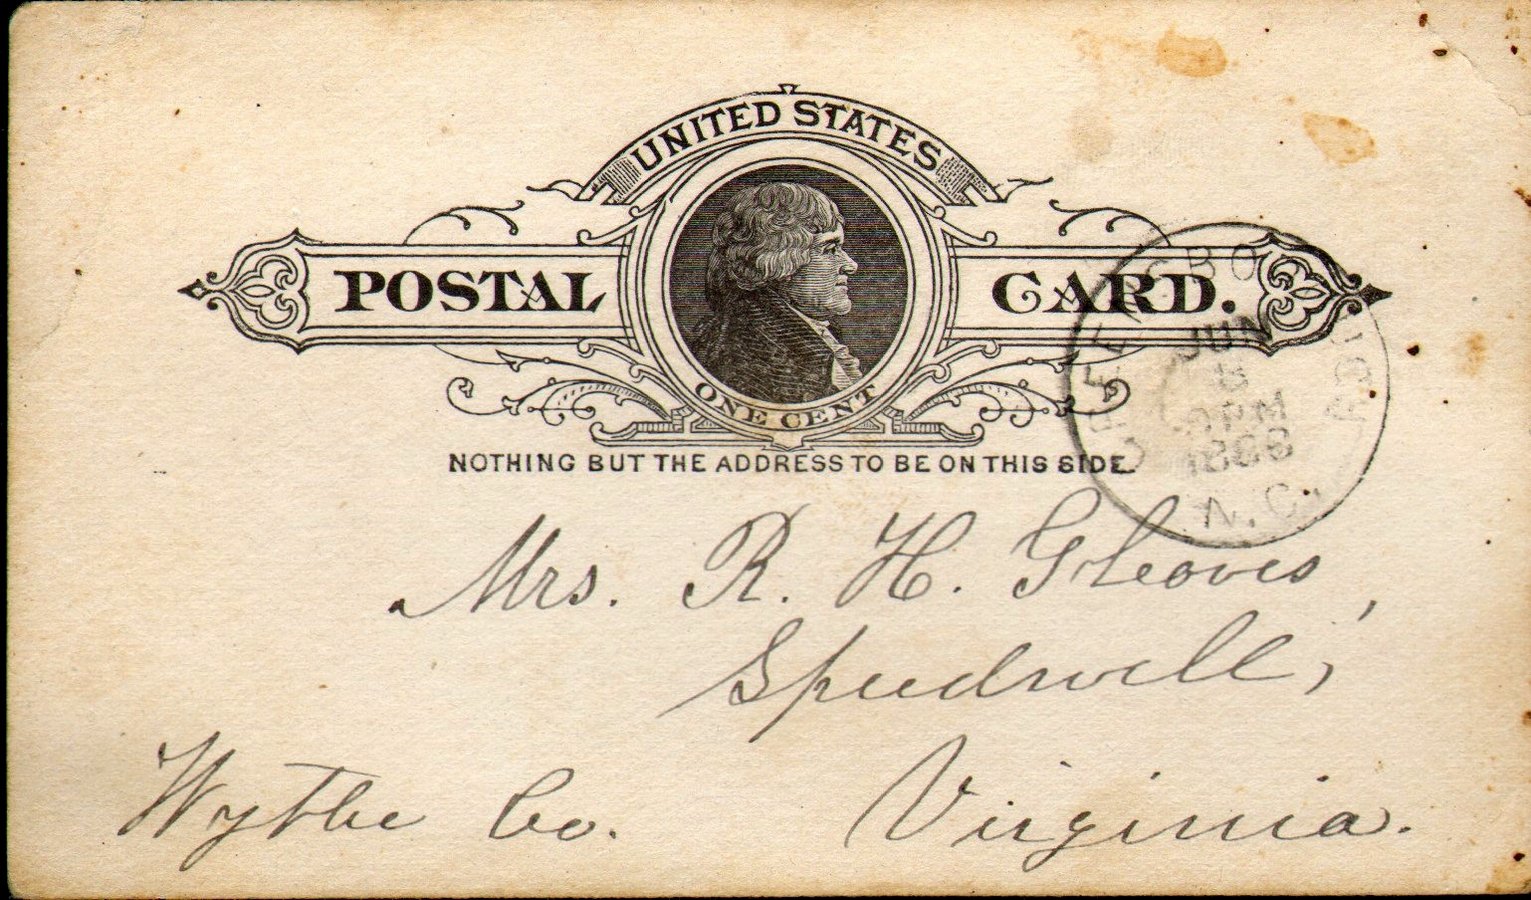 UNITED STATES
POSTAL CARD.
ONE CENT
NOTHING BUT THE ADDRESS TO BE ON THIS SIDE.
GREENSBORO
JUN
1888
N.C.
Mrs. R. H. Gleaves,
Speedwell,
Wythe Co. Virginia.